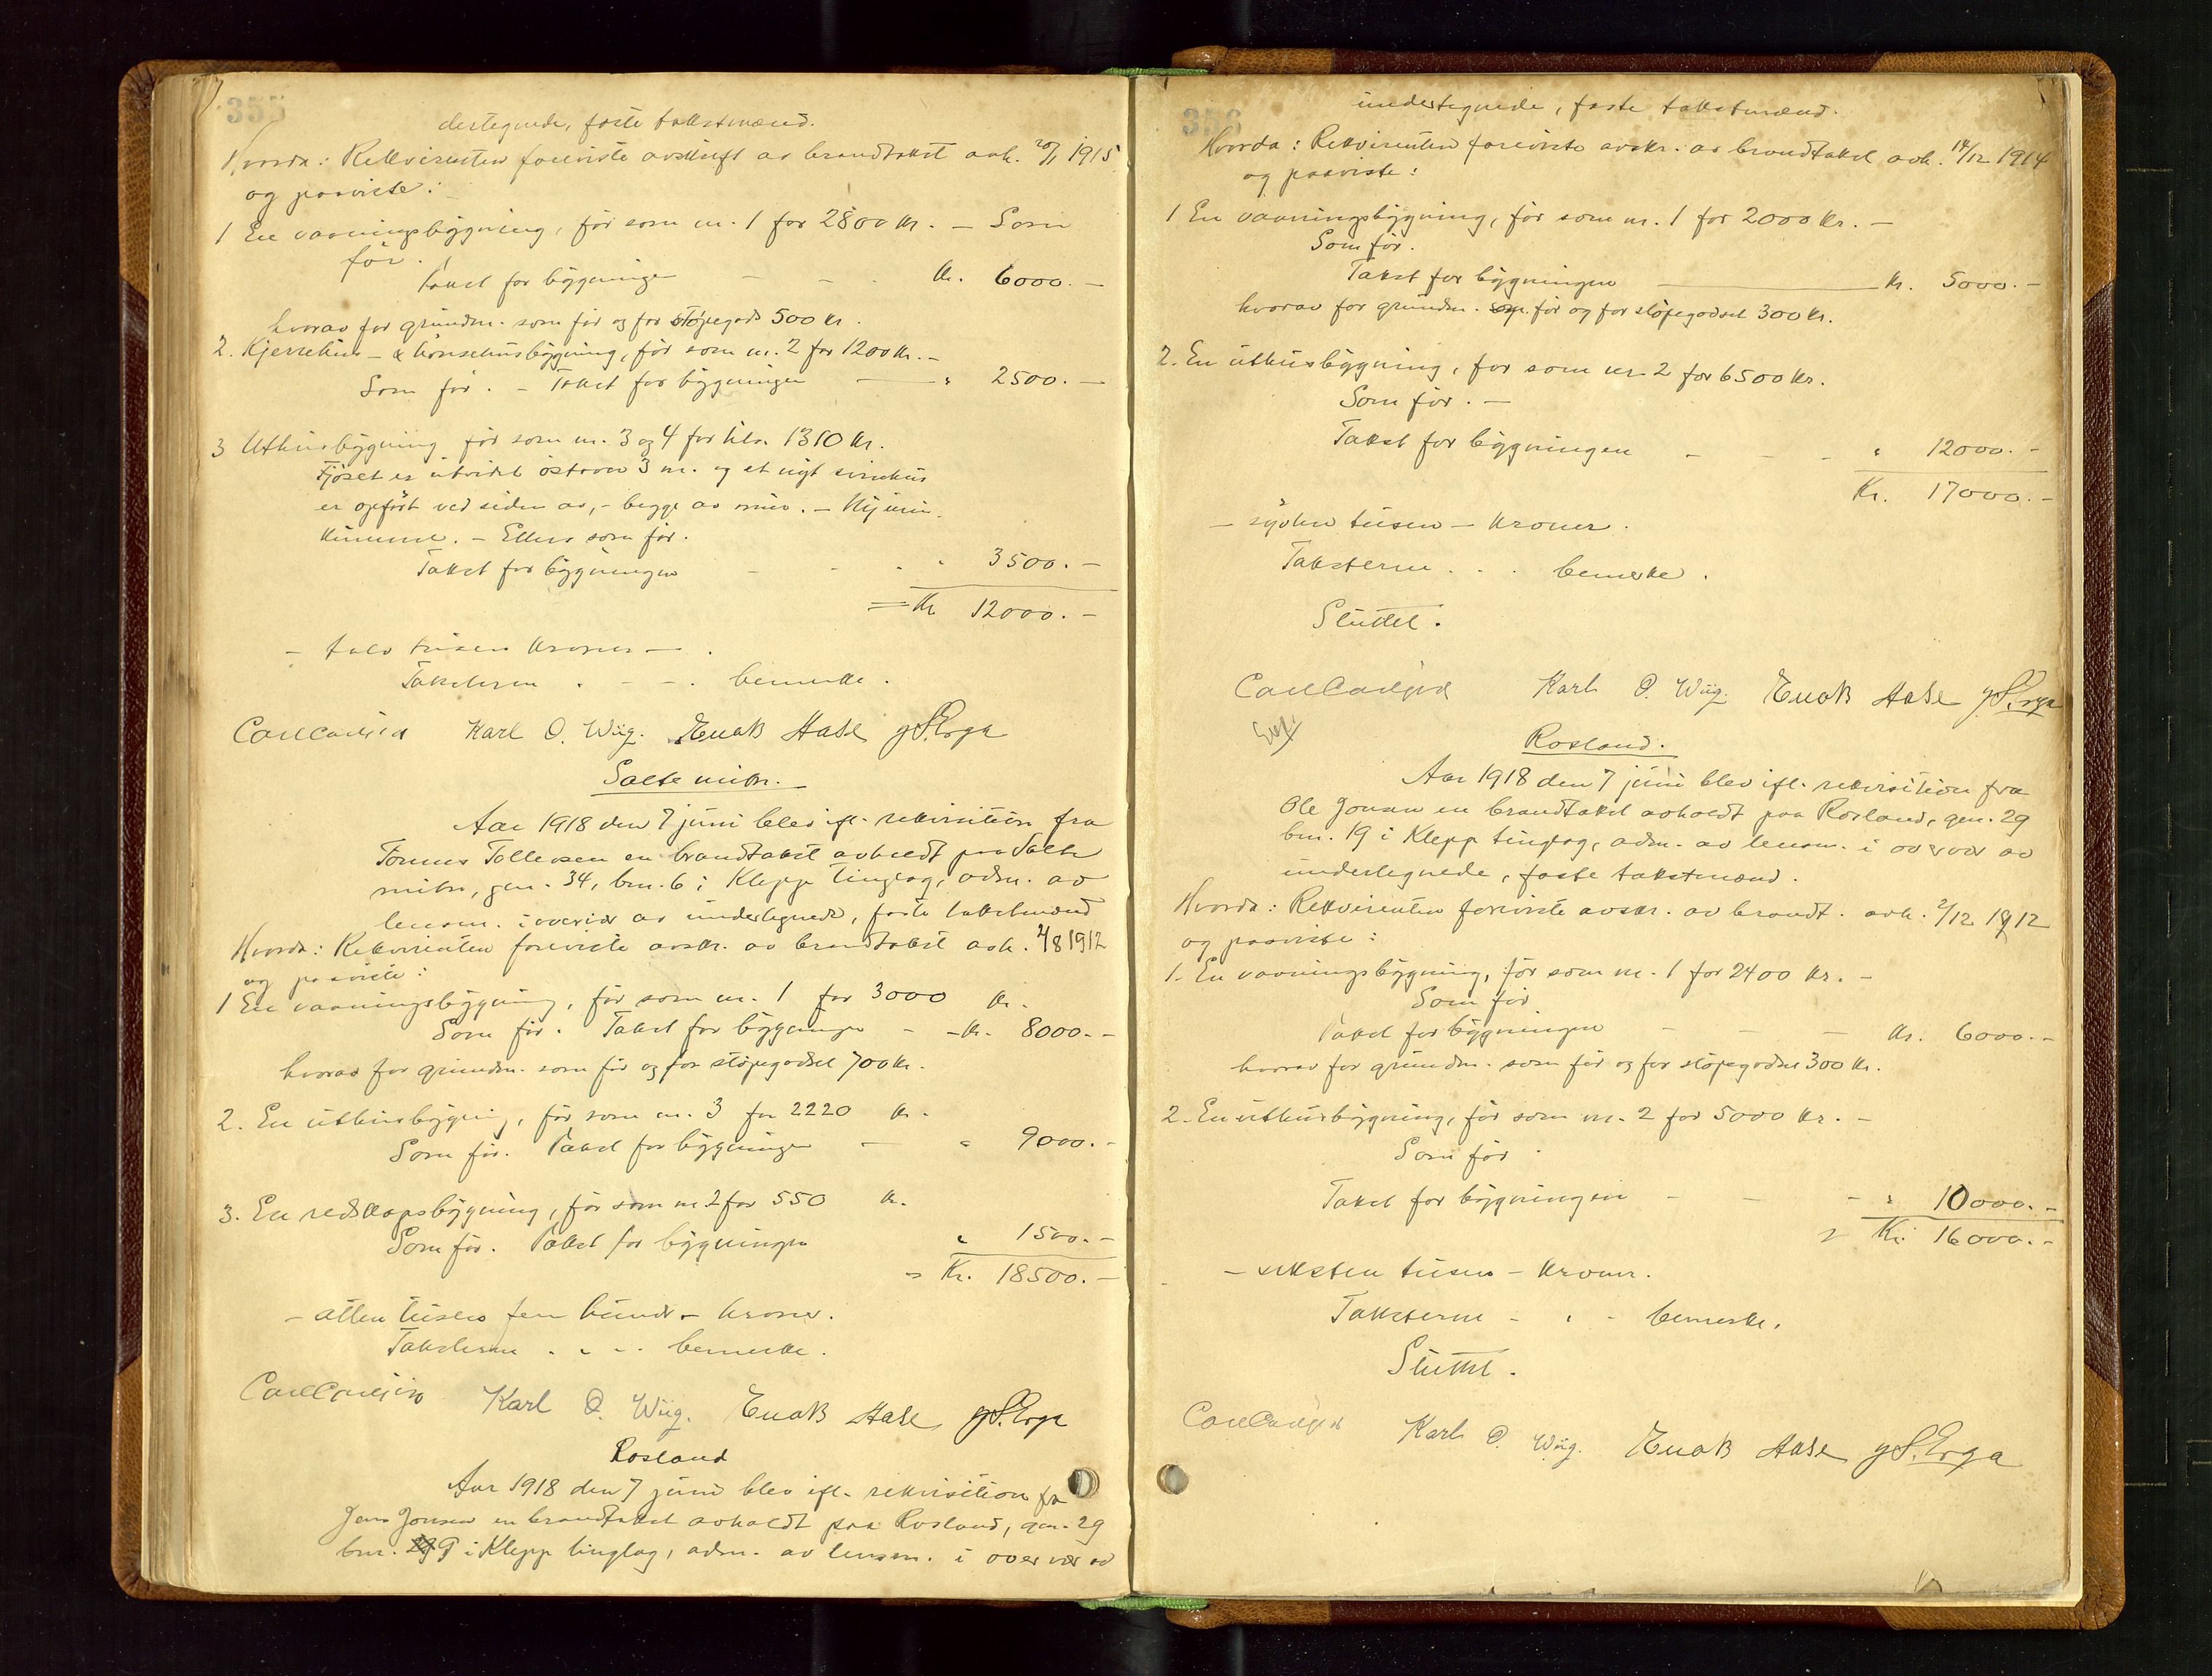 355
dertegnede, faste takstmænd.
Hvorda: Rekvirenten foreviste avskrift av brandtakst avh. 20/1 1915
og paaviste:
1 En vaaningsbygning, før som nr. 1 for 2800 kr. — Som
før.
Takst for bygningen — — . kr. 6000. —
hvorav for grundm. som før og for støpegods 500 kr.
2. Kjerrehus- & hønsehusbygning, før som nr. 2 for 1200 kr. —
Som før. — Takst for bygningen — " 2500. —
3 Uthusbygning før som nr. 3 og 4 for tils. 1310 kr.
Fjøset er utvidet østover 3 m. og et nyt svinehus
er opført ved siden av, - begge av mur. —
Ellers som før.
Takst for bygningen - - - " 3500. —
= Kr 12000. —
- tolv tusen kroner — .
Taksterne . - - . bemerke.
Karl O. Wiig. Enok Aase J S. Erga
Salte mitn.
Aar 1918 den 7 juni blev ifl. rekvisition fra
Tønnes Tollevsen en brandtakst avholdt paa Salte
mitn, gnr. 34, bnr. 6 i Klepp tinglag, adm. av
lensm. i overvær av undertegnede, faste takstmænd
Hvorda: Rekvirenten foreviste avskr. av brandtakst avh. 2/8 1912
og paaviste:
1 En vaaningsbygning, før som nr. 1 for 3000 kr.
Som før. Takst for bygningen - - kr. 8000. —
hvorav for grundm. som før og for støpegodset 700 kr.
2. En uthusbygning, før som nr. 3 for 2220 kr.
Som før. Takst for bygningen — " 9000. -
3. En redskapsbygning, før som nr. 2 for 550 kr.
Som før. Takst for bygningen " 1500. —
= Kr. 18500. —
- atten tusen fem hundr - kroner.
Taksterne . - - . bemerke.
Karl O. Wiig. Enok Aase J S. Erga
Rosland
Aar 1918 den 7 juni blev ifl. rekvisition fra
Jens Jonsen en brandtakst avholdt paa Rosland, gnr. 29
bnr. 9 i Klepp tinglag, adm. av lensm. i overvær av
356
undertegnede, faste takstmænd.
Hvorda: Rekvirenten foreviste avskr. av brandtakst avh. 14/12 1914
og paaviste:
1 En vaaningsbygning, før som nr. 1 for 2000 kr. —
Som før.
Takst for bygningen — kr. 5000. —
hvorav for grundm. som før og for støpegodset 300 kr.
2. En uthusbygning, før som nr 2 for 6500 kr.
Som før. —
Takst for bygningen - - - " 12000. -
Kr. 17000. -
- sytten tusen - kroner.
Taksterne . . . bemerke.
Sluttet.
Karl O. Wiig. Enok Aase J S. Erga
Rosland.
Aar 1918 den 7 juni blev ifl. rekvisition fra
Ole Jonsen en brandtakst avholdt paa Rosland, gnr. 29
bnr. 19 i Klepp tinglag, adm. av lensm. i overvær av
undertegnede, faste takstmænd.
Hvorda: Rekvirenten foreviste avskr. av brandt. avh. 2/12 1912
og paaviste:
1. En vaaningsbygning, før som nr. 1 for 2400 kr. —
Som før
Takst for bygningen - - — kr. 6000. -
hvorav for grundm. som før og for støpegodset 300 kr.
2. En uthusbygning, før som nr. 2 for 5000 kr. —
Som før
Takst for bygningen - - - " 10000. -
= Kr. 16000. -
- seksten tusen - kroner.
Taksterne - . - bemerke.
Sluttet.
Karl O. Wiig. Enok Aase J S. Erga